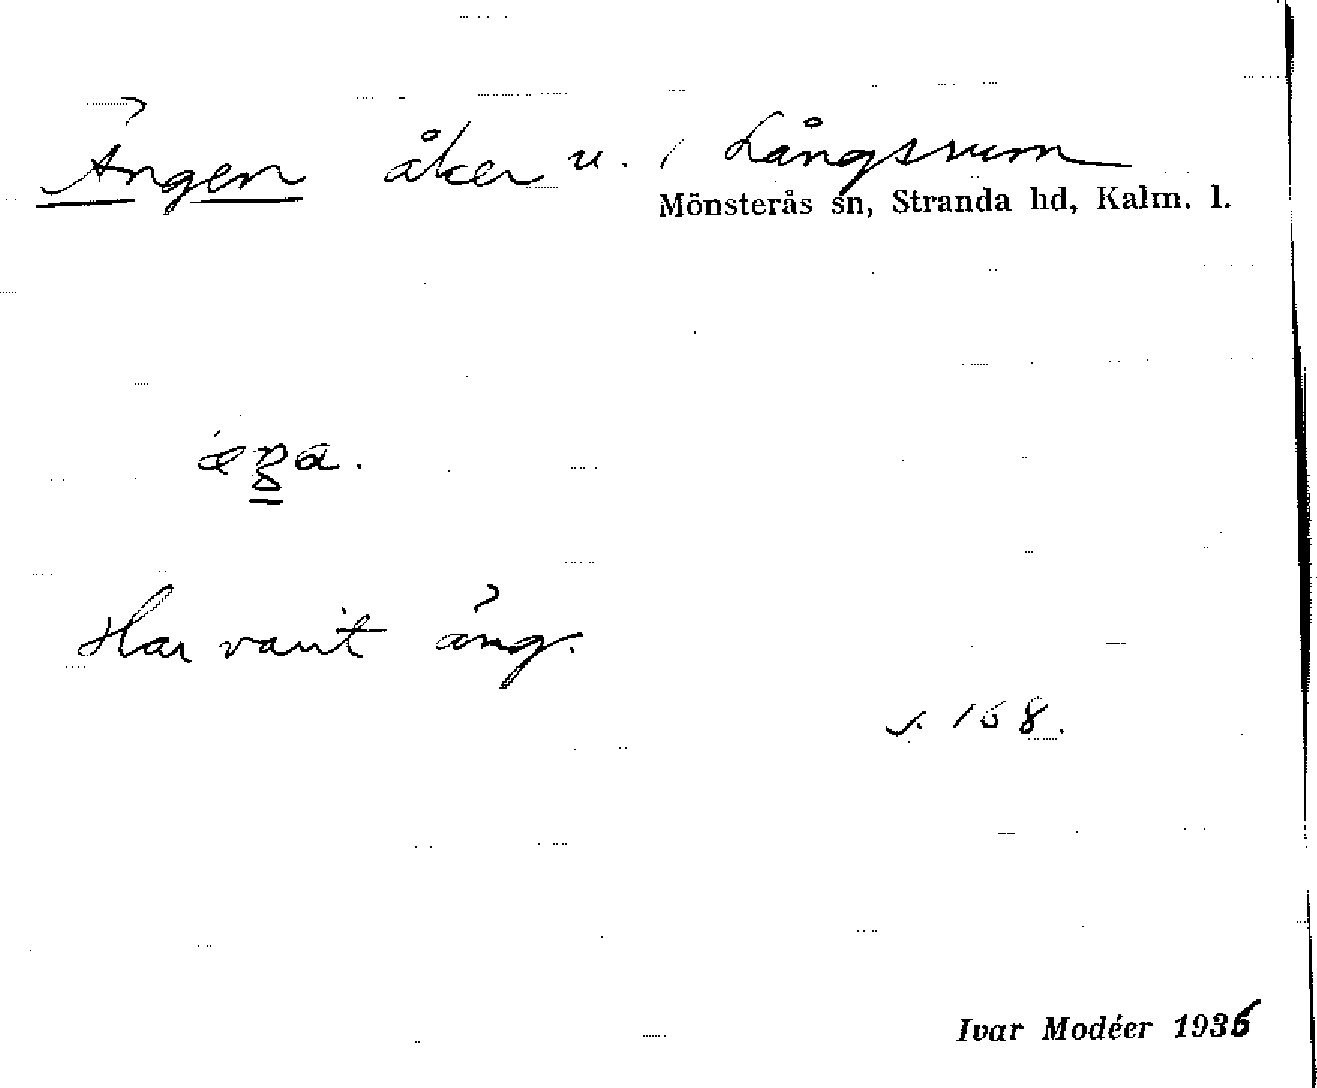 Ängen åker u. i Långsrum
Mönsterås sn, Stranda hd, Kalm. l.
Har varit äng.
s. 168.
Ivar Modéer 1936